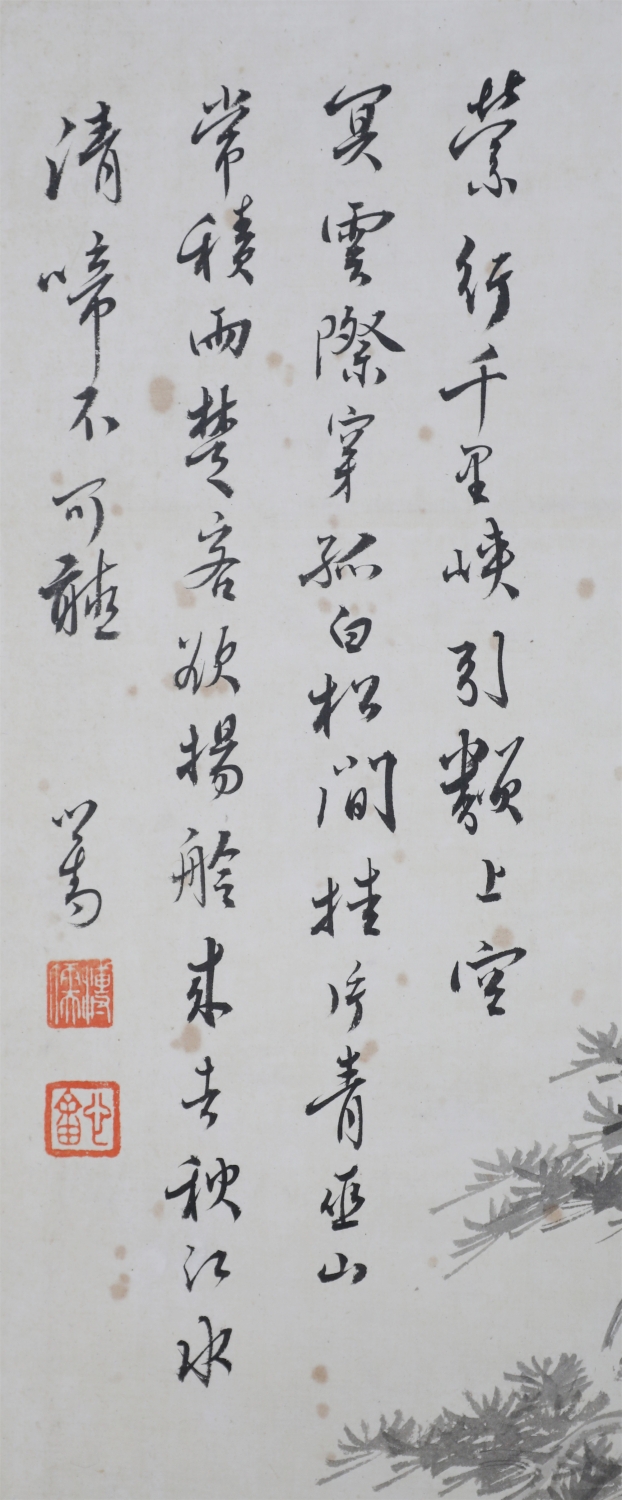 縈行千里峽引類上空
冥雲際穿孤白松間挂片青巫山
常積雨楚客欲揚舲來去秋江水
清啼不可聽 心畬
溥儒
心畬